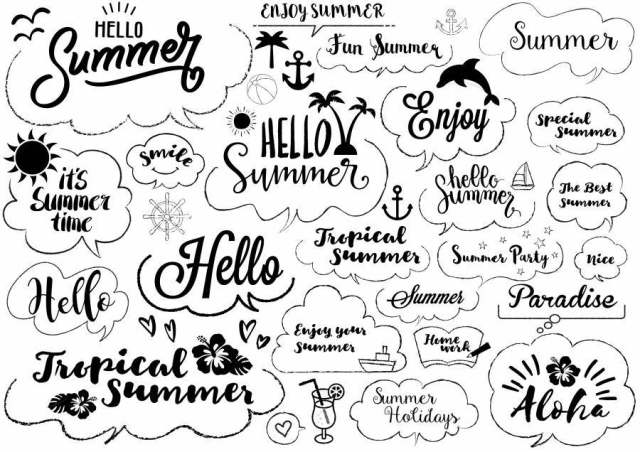 HELLO
Summer
ENJOY SUMMER
Fun Summer
Summer
Enjoy
Special
Summer
HELLO
Summer
smile
it's
Summer
time
hello
Summer
The Best
Summer
Tropical
Summer
Summer Party
Nice
Hello
Hello
Summer
Paradise
Enjoy your
Summer
Home
work
Tropical
Summer
Summer
Holidays
Aloha